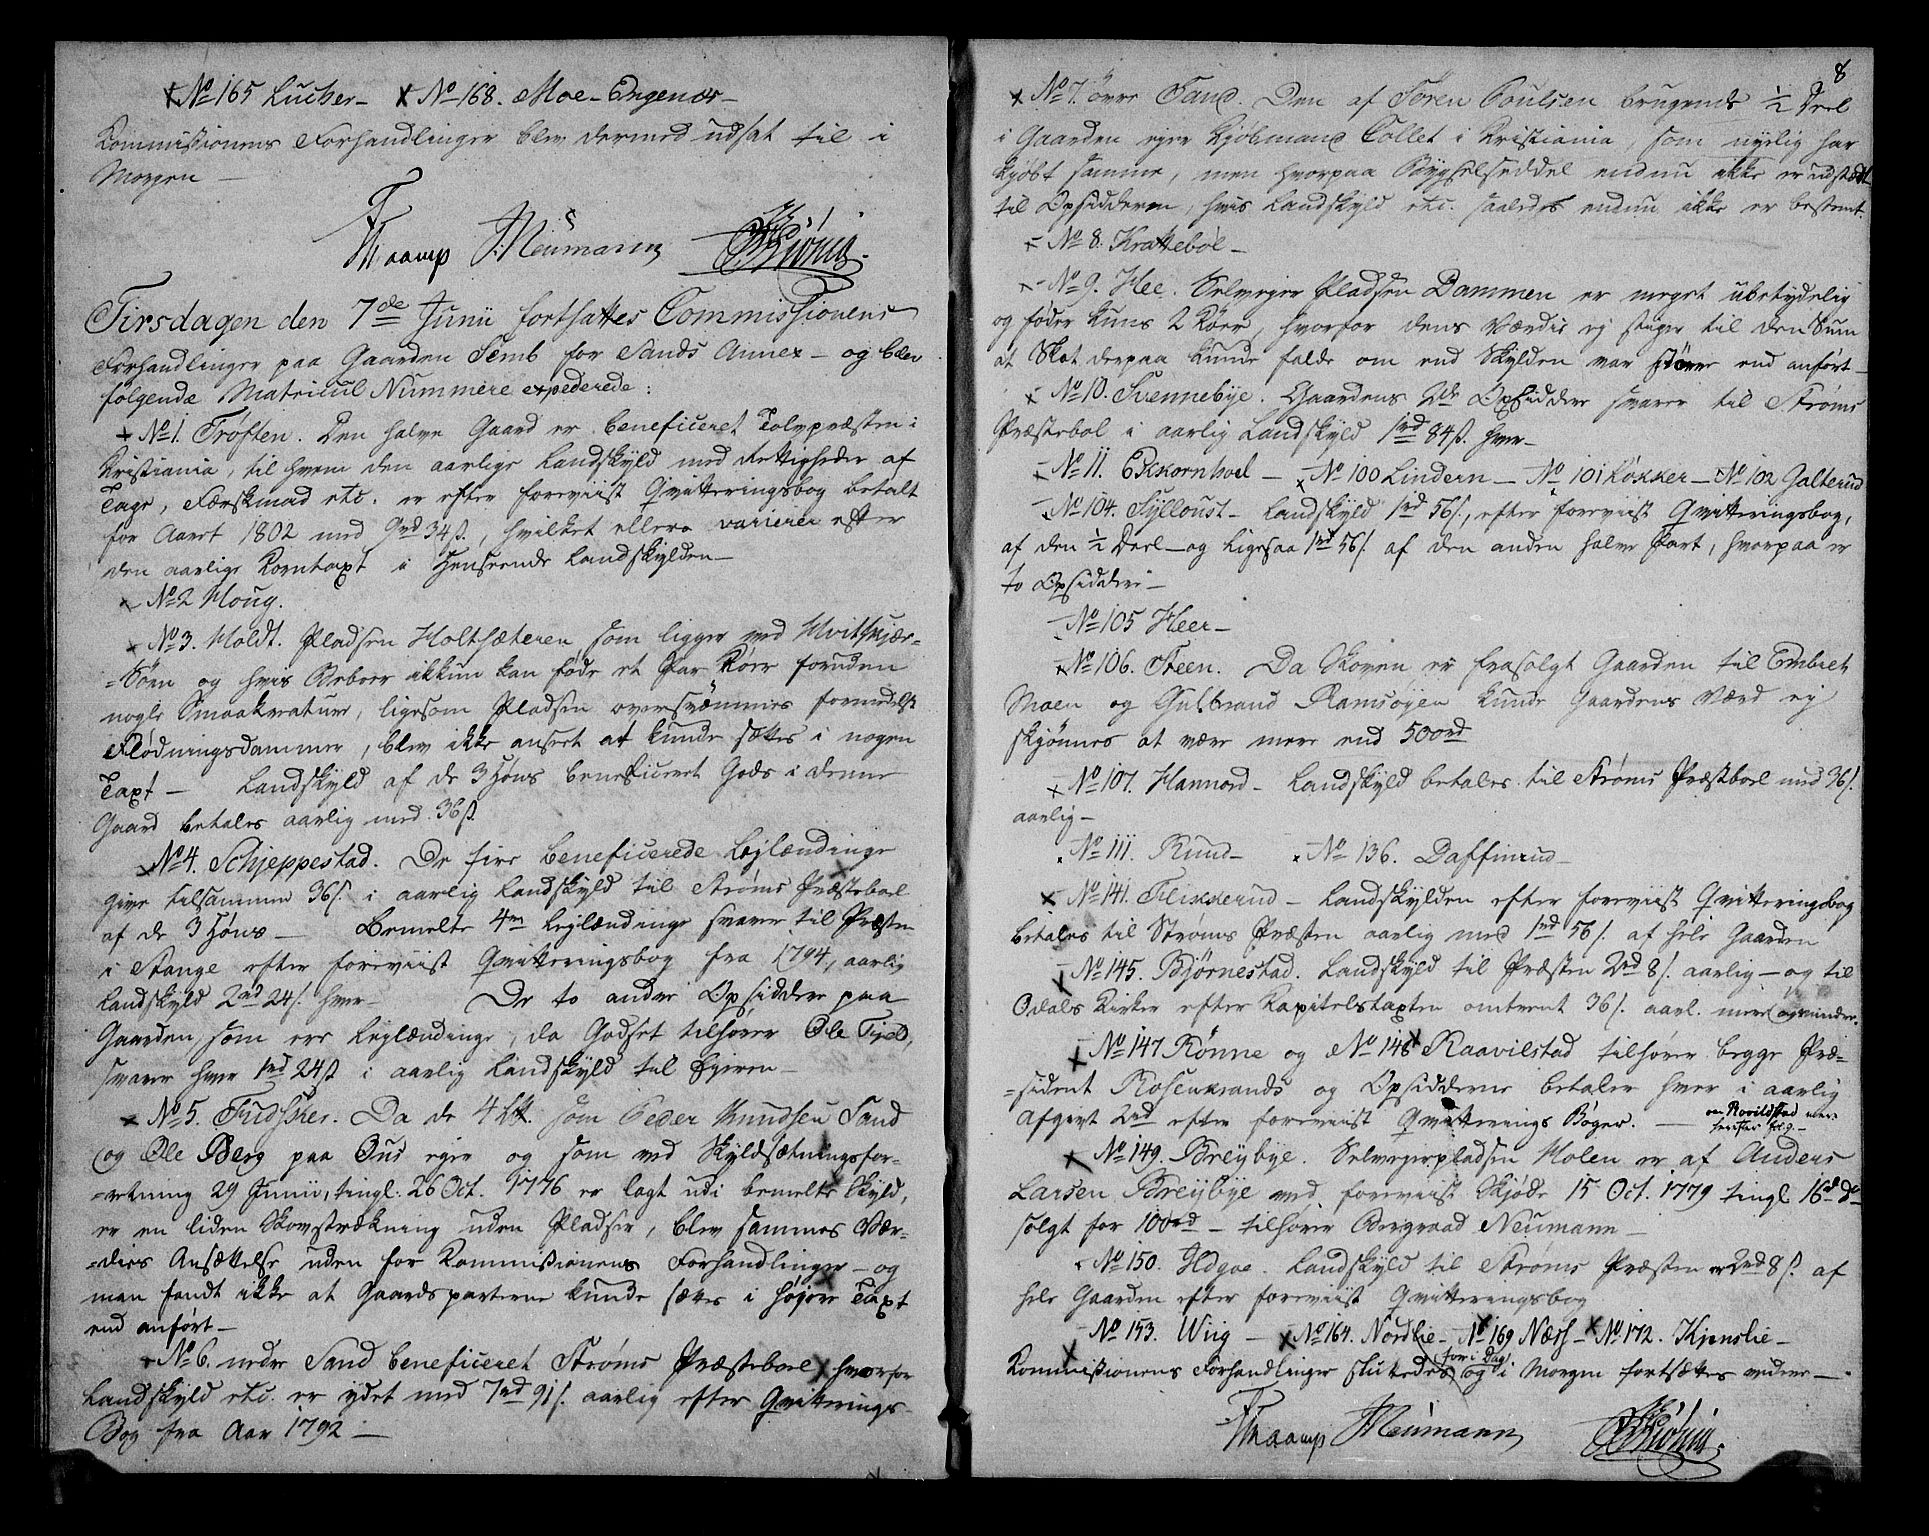 No 165 Lucher - No 168. Moe-Engenes -
Kommissionens Forhandlinger blev dermed udsat til i
Morgen -
Thaamp J. Neumann
Tirsdagen den 7de Junii fortsattes Commissionens
Forhandlinger paa Gaarden Semb for Sands Annex - og blev
følgende Matricul Nummere expederede:
No 1. Trøften. Den halve Gaard er beneficeret Tolvpræsten i
Kristiania, til hvem den aarlige Landskyld med Rettigheder af
Tage, Færskmad etc. er efter foreviist Qvitteringsbog betalt
for Aaret 1802 med 9rd 34s., hvilket ellers varierer efter
den aarlige Korntaxt i Henseende Landskylden -
No 2 Houg.
No 3. Holdt. Pladsen Holtsæteren som ligger ved Hvitskjær-
=Søen og hvis Beboer ikkun kan føde et Par Køer foruden
nogle Smaakreature, ligesom Pladsen oversvømmes formedelst
Flødningsdammer, blev ikke anseet at kunde sættes i nogen
Taxt - Landskyld af de 3 Høns beneficeret Gods i denne
Gaard betales aarlig med 36s.
No 4. Schjeppestad. De fire beneficerede Leylændinge
give tilsammen 36s. i aarlig Landskyld til Strøms Præsteboel
af de 3 Høns - Bemelte 4re Leylændinge svarer til Præsten
i Stange efter foreviist Qvitteringsbog fra 1794, aarlig
Landskyld 2rd 24s. hver - De to andre Opsiddere paa
Gaarden som ere Leylændinge, da Godset tilhører Ole Fjeld,
svarer hver 1rd 24s i aarlig Landskyld til Ejeren -
No 5. Fudskier. Da de 4 som Peder Knudsen Sand
og Ole Berg paa Ous ejer og som ved Skyldsætningsfor-
=retning 29 Junii, tingl: 26 Oct. 1776 er lagt udi bemelte Skyld,
er en liden Skovstrækning uden Pladser, blev sammes Vær-
=dies Ansættelse uden for Kommissionens Forhandlinger - og
man fandt ikke at Gaardsparterne kunde sættes i højere Taxt
end anført -
No 6. nedre Sand beneficeret Strøms Præsteboel hvorfor
Landskyld etc. er ydet med 7rd 91s. aarlig efter Qvitterings-
Bog fra Aar 1792 -
8
No 7. övre Sand. Den af Sören Poulsen brugende 1/2 Deel
i Gaarden ejer Kjøbmand Collet i Kristiania, som nyelig har
kjøbt samme, men hvorpaa Bygselseddel endnu ikke er udstædt
til Opsidderen, hvis Landskyld etc. saaledes endnu ikke er bestemt.
No 8. Krattebøl -
No 9. Hee. Selvejer Pladsen Dammen er meget ubetydelig
og føder kuns 2 Køer, hvorfor dens Værdie ej stiger til den Sum
at Skat derpaa kunde falde om end Skylden var større end anført -
No 10. Svennebye. Gaardens 2de Opsiddere svarer til Strøms
Præstebol i aarlig Landskyld 1rd 84s. hver -
No 11. Ekkornhoel - No 100 Lindern - No 101 Løkker - No 102 Galterud
No 104. Sylloust - Landskyld 1rd 56s., efter foreviist Qvitteringsbog,
af den 1/2 Deel - og ligesaa 1rd 56s. af den anden halve Part, hvorpaa er
to Opsiddere -
No 105 Heer -
No 106. Steen. Da Skoven er frasolgt Gaarden til Embret
Moen og Gulbrand Ramsøyen kunde Gaardens Værd ej
skjønnes at være mere end 500rd
No 107. Hannord - Landskyld betales til Strøms Præstboel med 36s.
aarlig -
No 111. Ruud - No 136. Daffinrud -
No 141. Flikkerud - Landskylden efter foreviist Qvitteringsbog
betales til Strøms Præsten aarlig med 1rd 56s. af hele Gaarden
No 145. Bjørnestad. Landskyld til Præsten 2rd 8s. aarlig - og til
Odals Kirker efter Kapitelstaxten omtrent 36s. aarl. mere og mindre.
No 147 Rønne og No 148 Raavilstad tilhører begge Præ-
=sident Rosenkrands og Opsidderne betaler hver i aarlig
Afgivt 2rd efter foreviist Qvitterings Bøger. - om Rovildstad mere
No 149. Breybye. Selvejerpladsen Holen er af Anders
Larsen Breybye ved foreviist Skjøde 15 Oct. 1779 tingl. 16de ds
solgt for 100rd - tilhører Bergraad Neumann -
No 150. Ildgoe. Landskyld til Strøms Præsten er 2rd 8s. af
hele Gaarden efter foreviist Qvitteringsbog
No 153. Wiig - No 164. Nordlie - No 169 Næss - No 172. Kjenslie -
for i Dag
Kommissionens Forhandlinger sluttedes og i Morgen fortsættes videre -
Thaamp J Neumann